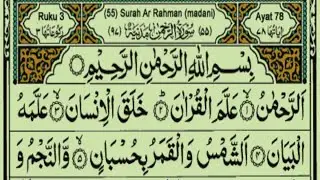 Ruku 3 (55) Surah Ar Rahman (madani) Ayat 78
رکوعاتها ۳ (۹۷) سورة الرحمن مدنية (۵۵) اياتها ۷۸
بِسْمِ اللهِ الرَّحْمٰنِ الرَّحِيْمِ
اَلرَّحْمٰنُ ۝۱ عَلَّمَ الْقُرْاٰنَ ۝۲ خَلَقَ الْاِنْسَانَ ۝۳ عَلَّمَهُ
الْبَيَانَ ۝۴ اَلشَّمْسُ وَالْقَمَرُ بِحُسْبَانٍ ۝۵ وَّالنَّجْمُ وَ